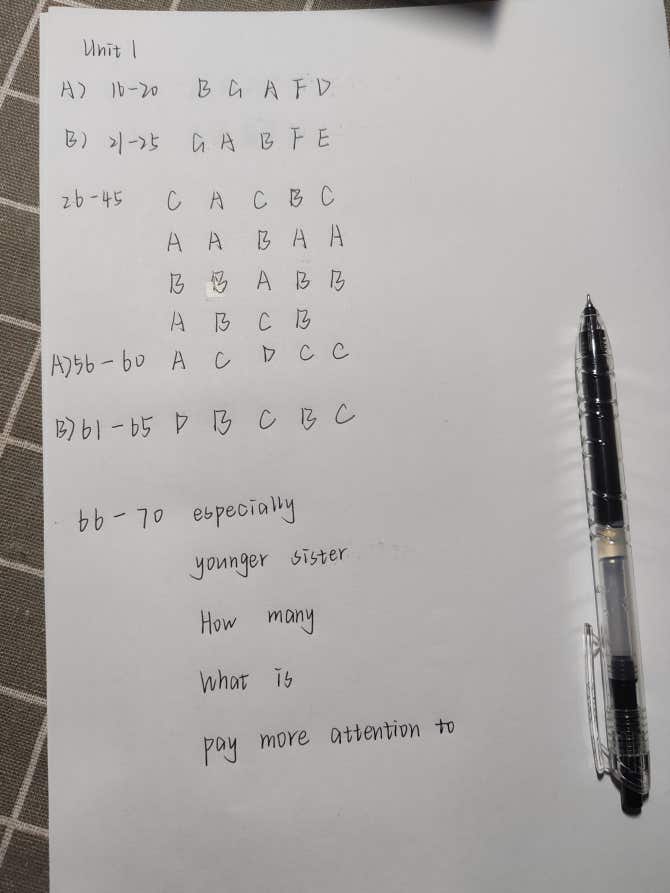 Unit 1
A) 16-20 B G A F D
B) 21-25 G A B F E
26-45 C A C B C
A A B A A
B B A B B
A B C B
A) 56-60 A C D C C
B) 61-65 D B C B C
66-70 especially
younger sister
How many
What is
pay more attention to